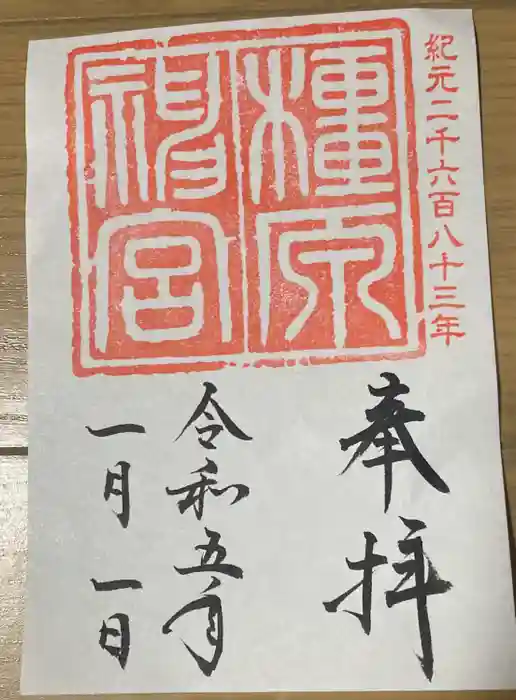 紀元二千六百八十三年
橿原
神宮
奉拝
令和五年
一月一日